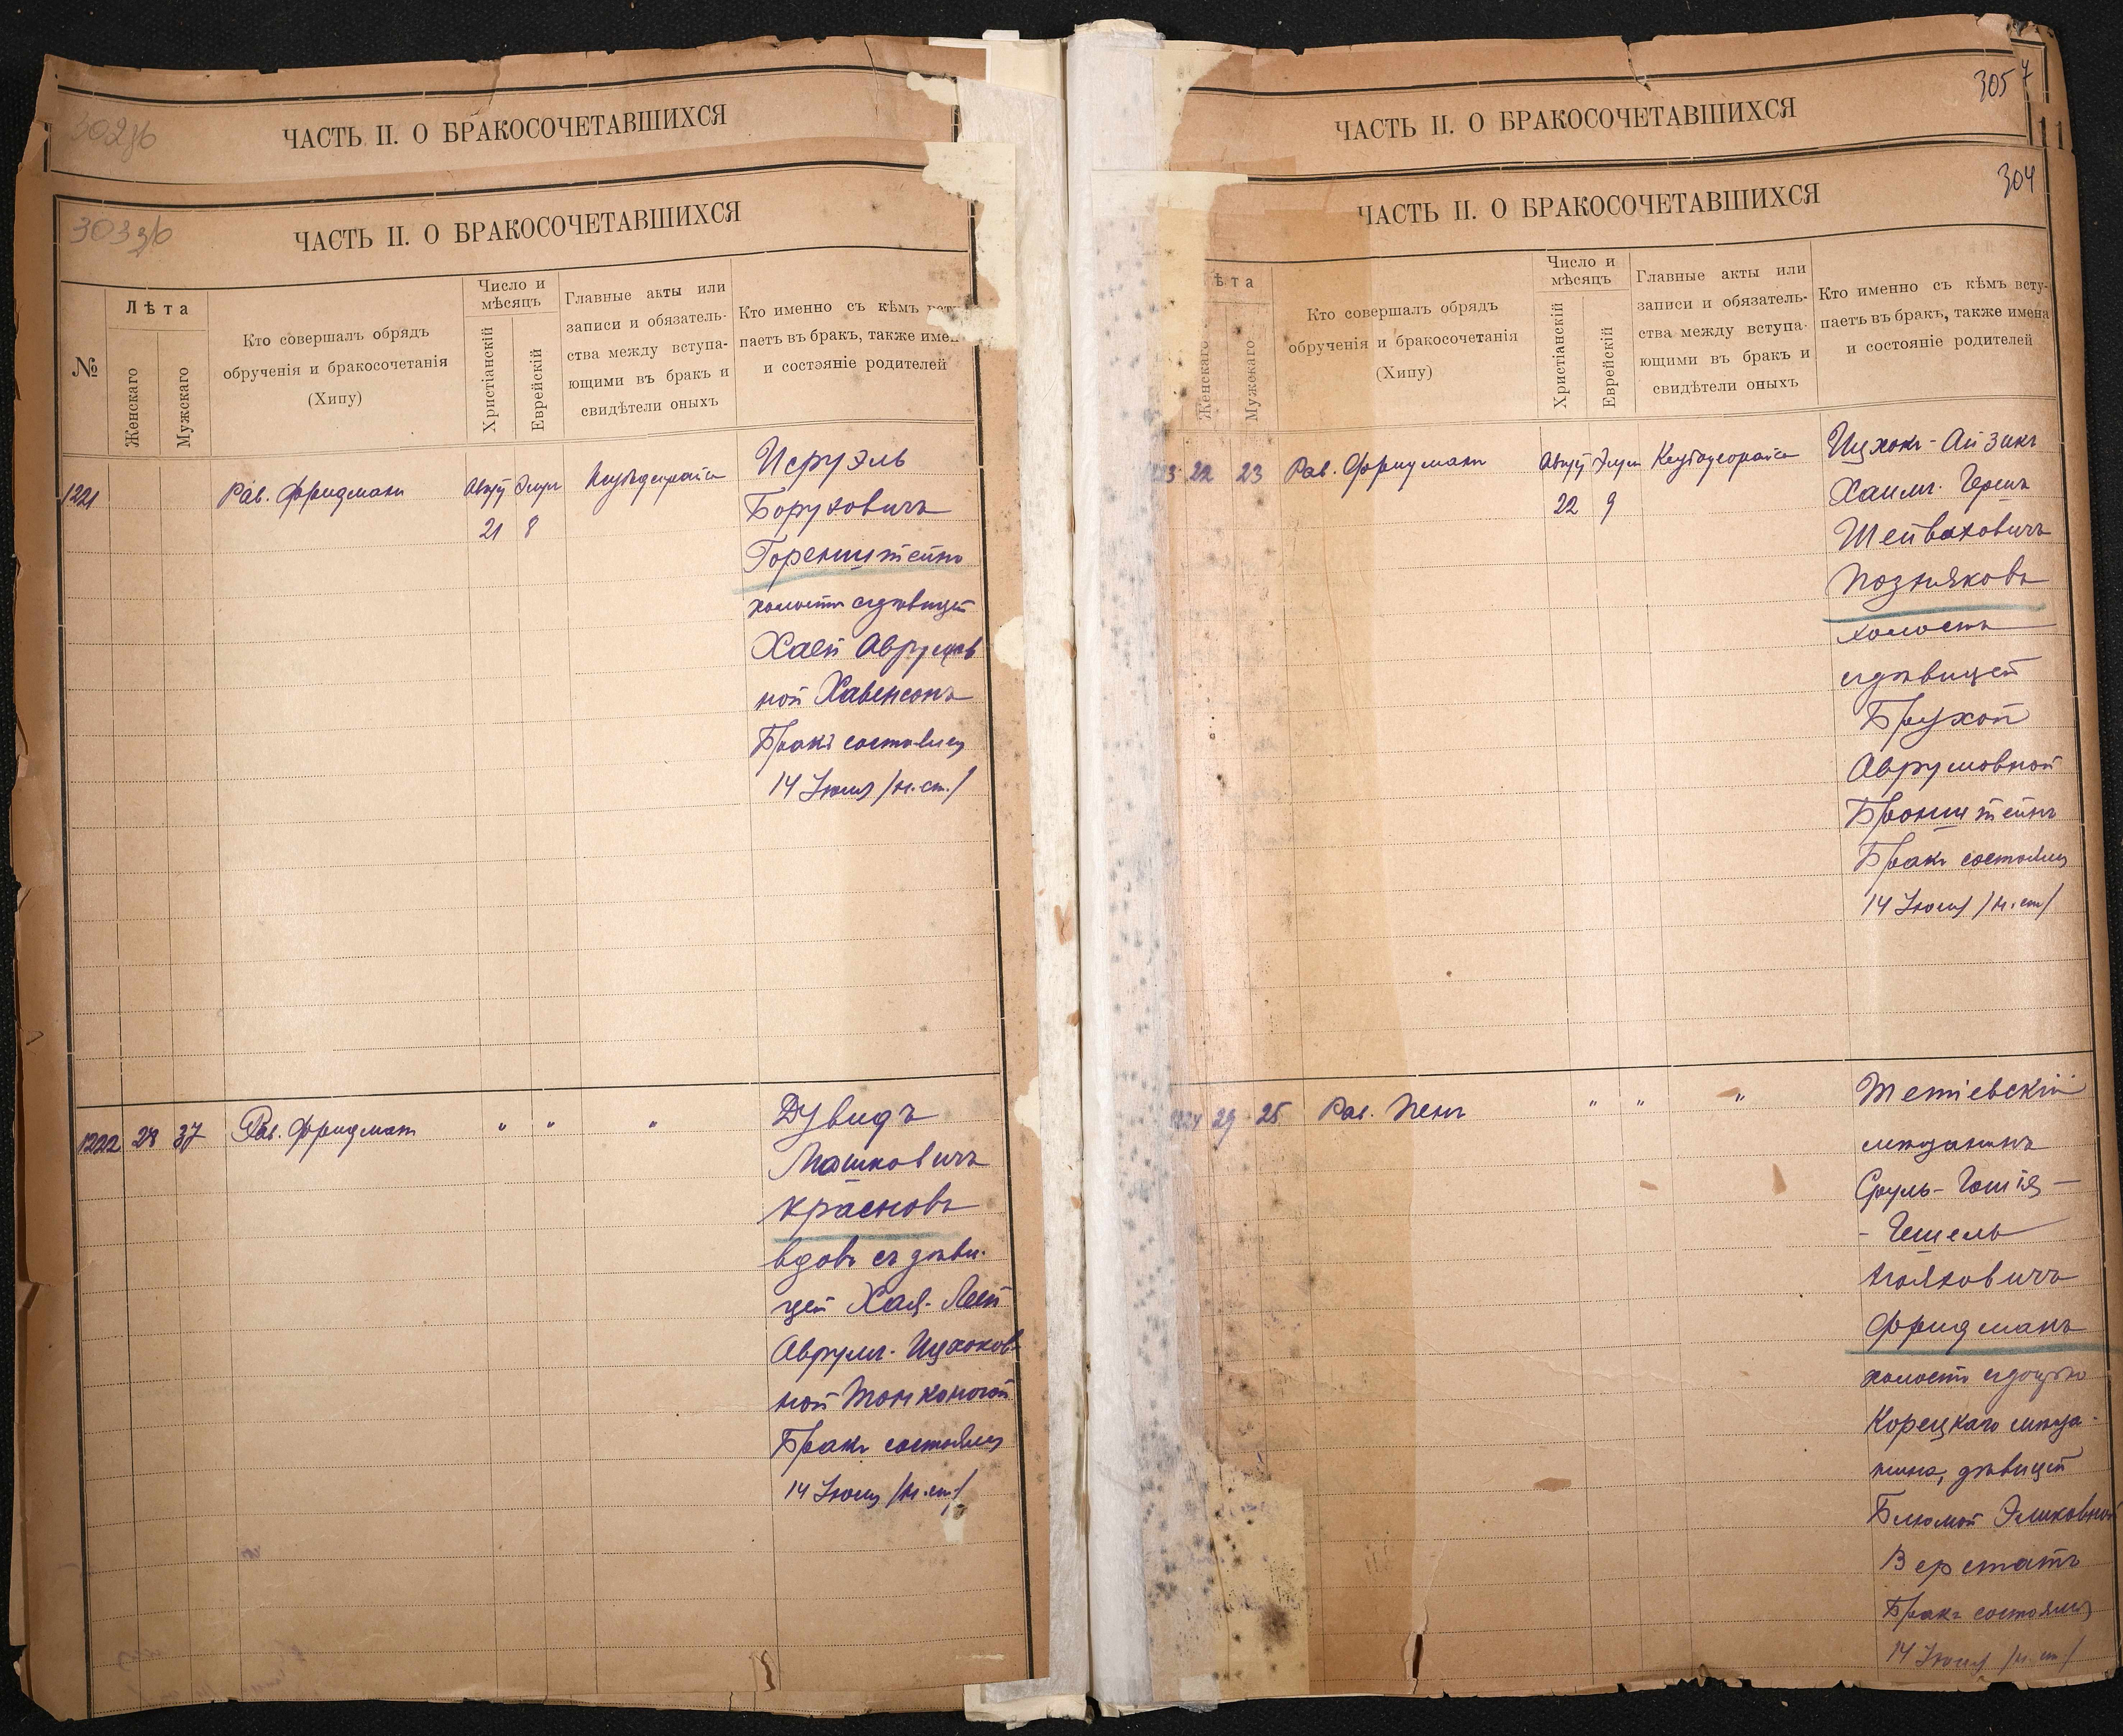 302 об
ЧАСТЬ II. О БРАКОСОЧЕТАВШИХСЯ
303 об
ЧАСТЬ II. О БРАКОСОЧЕТАВШИХСЯ
№
Лѣта
Женскаго
Мужскаго
Кто совершалъ обрядъ
обрученія и бракосочетанія
(Хипу)
Число и
мѣсяцъ
Христіанскій
Еврейскій
Главные акты или
записи и обязатель-
ства между вступа-
ющими въ бракъ и
свидѣтели оныхъ
Кто именно съ кѣмъ всту
паетъ въ бракъ, также имен
и состояніе родителей
1221
Рав. Фридманъ
Авгу Элул
21 8
Исруэль
Боруховичъ
Горенштейнъ
холостъ сдѣвицей
Хаей Аврумов
ной Хавенсонъ
Бракъ состоялся
14 Іюля /н. ст./
1222 28 37 Рав. Фридманъ " " "
Дувидъ
Машковичъ
Красновъ
вдовъ съ дѣви-
цей Хая-Леей
Аврум-Ицхоков
ной Тонконогой
Бракъ состоялся
14 Іюля /н. ст./
305 7
ЧАСТЬ II. О БРАКОСОЧЕТАВШИХСЯ
304
ЧАСТЬ II. О БРАКОСОЧЕТАВШИХСЯ
ѣта
Женскаго
Мужскаго
Кто совершалъ обрядъ
обрученія и бракосочетанія
(Хипу)
Число и
мѣсяцъ
Христіанскій
Еврейскій
Главные акты или
записи и обязатель-
ства между вступа-
ющими въ бракъ и
свидѣтели оныхъ
Кто именно съ кѣмъ всту-
паетъ въ бракъ, также имена
и состояніе родителей
22 23 Рав. Фридманъ
Авгу Элул
22 9
Ицхокъ-Айзикъ
Хаимъ-Гершъ
Шейваховичъ
Позняковъ
холостъ
сдѣвицей
Брухой
Аврумовной
Бронштейнъ
Бракъ состоялся
14 Іюля /н. ст/
29 25 Рав. Пенъ " " "
Тетіевскій
мѣщанинъ
Сруль-Гошія-
-Гешель
Фридманъ
холостъ сдочерью
Корецкаго мѣща-
нина, дѣвицей
Блюмой Эликовной
Верстатъ
Бракъ состоялся
14 Іюля /н. ст/